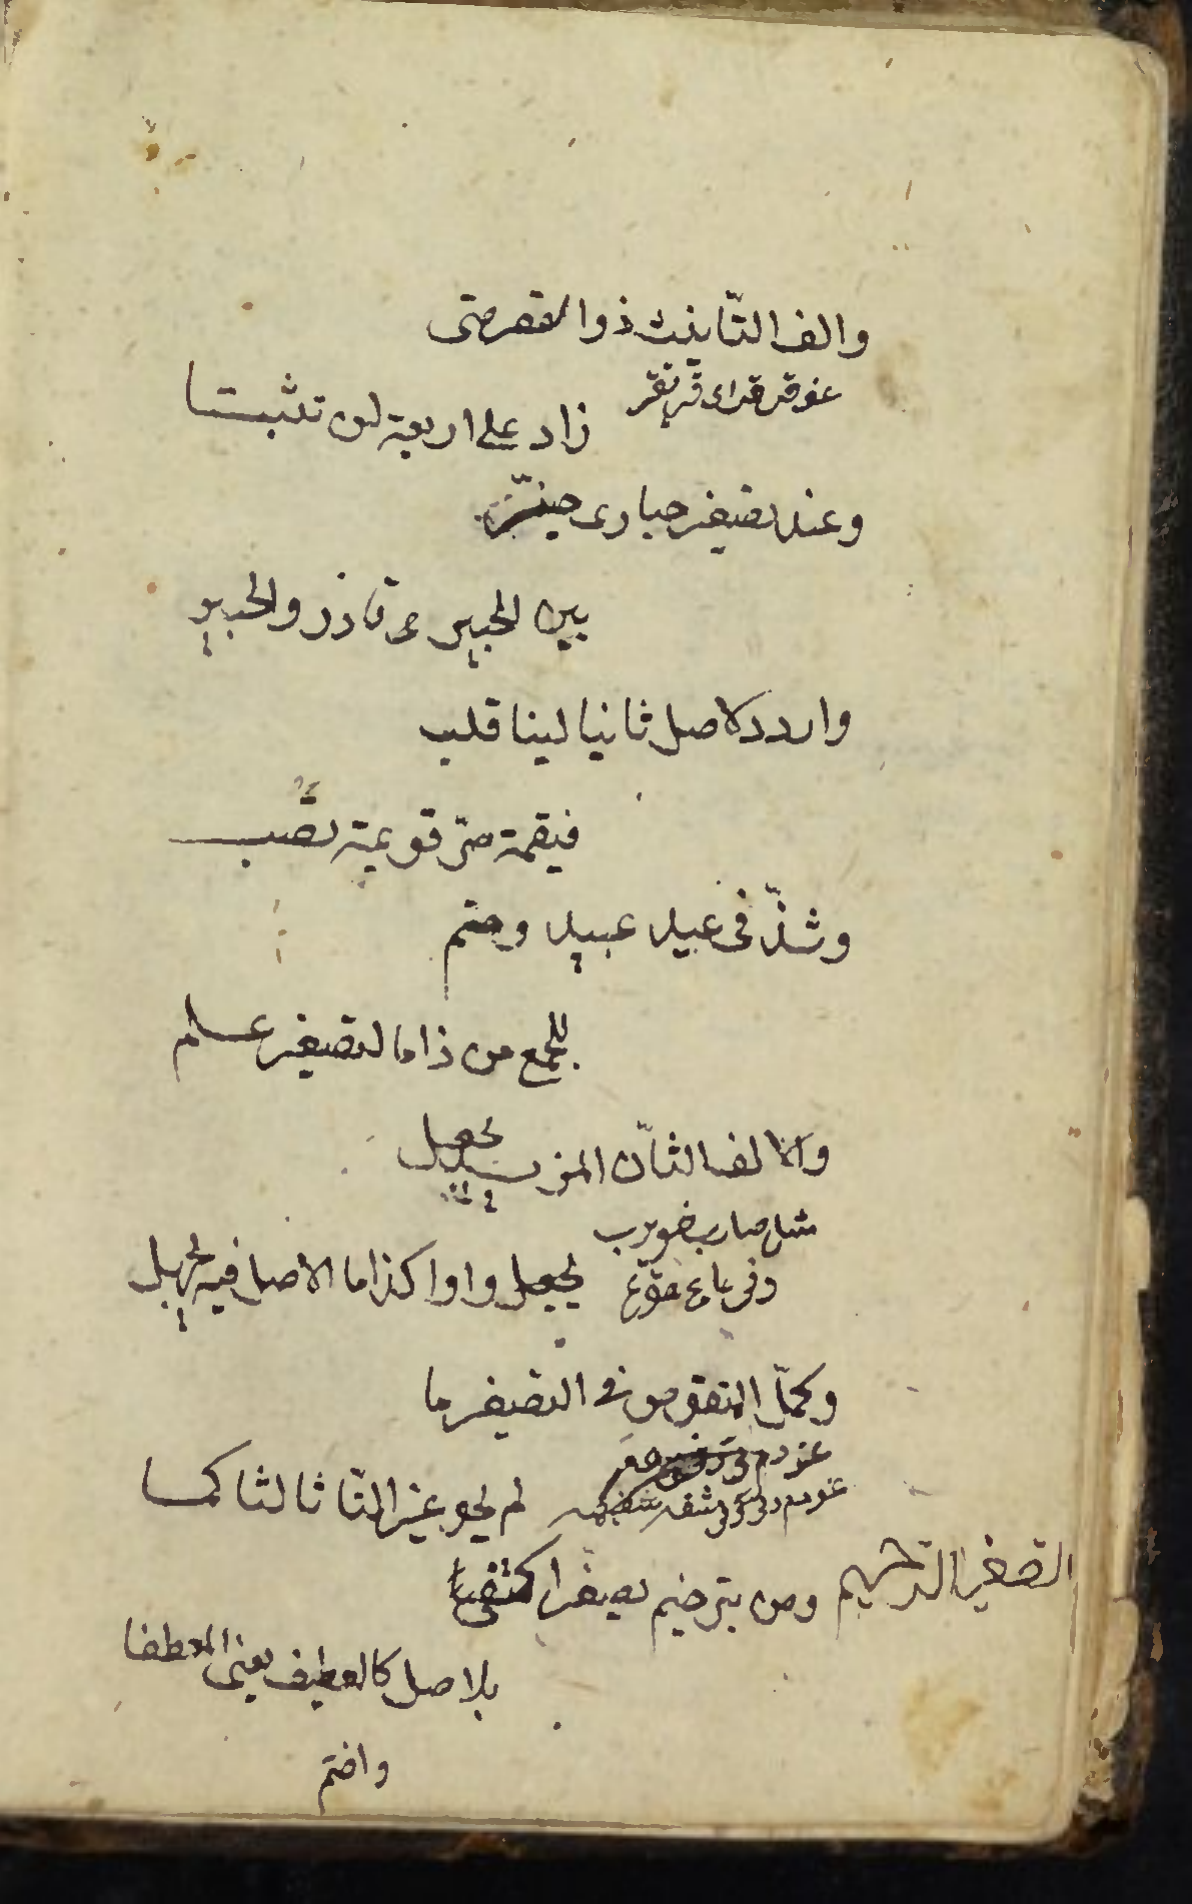 والف التّأنيث ذو القصر متى
زاد على اربعة لن تثبتا
وعند تصغير حبارى خيّر
بين الحبيرى فادر والحبير
واردد لاصل ثانيا لينا قلب
فقيمة صيّر قويمة تصب
وشذّ فى عيد عييد وحتم
للجمع من ذا ما لتصغير علم
والالف الثان المزيد يجعل
مثل ضارب ضويرب
يجعل واوا كذا ما الاصل فيه يجهل
وكمّل المنقوص فى التصغير ما
لم يحو غير التا ثالثا كما
التصغير الترخيم
ومن بترخيم يصغر اكتفى
بلاصل كالعطيف يعنى المعطفا
واختم